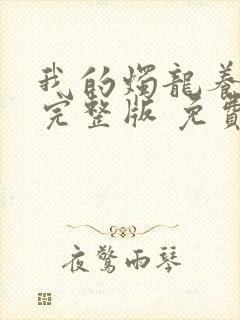 我的燭龍養
完整版 免費
夜驚雨琴